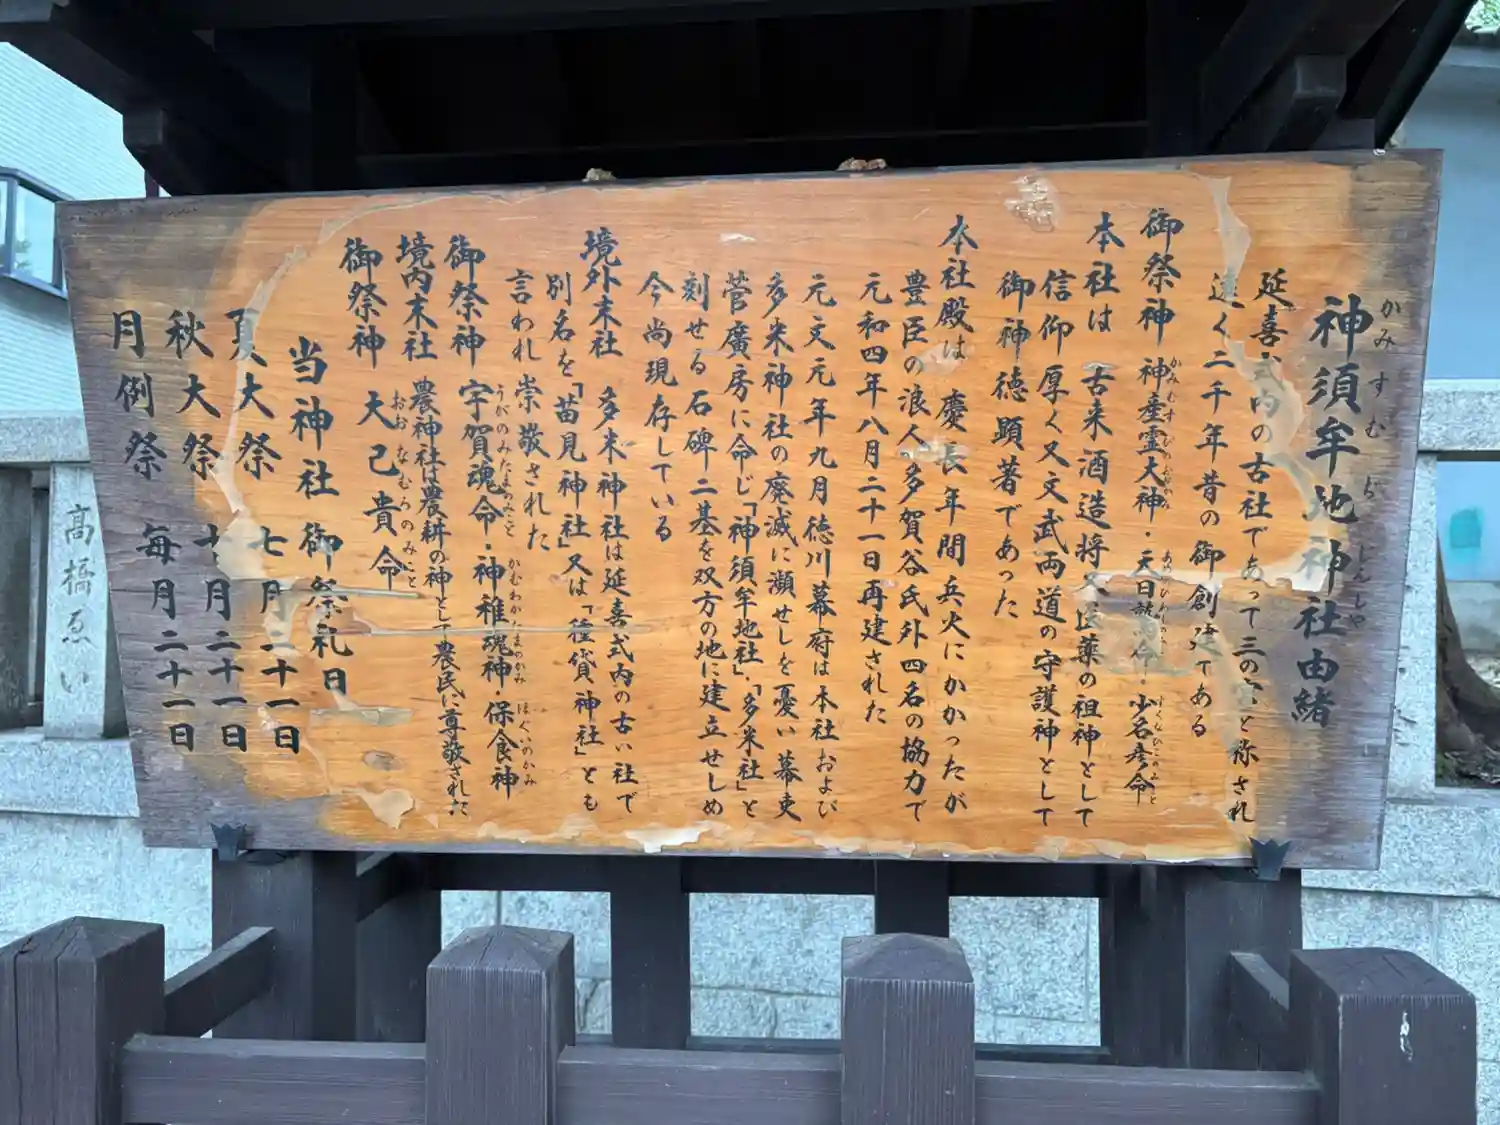 神須牟地神社由緒
かみすむぢじんじゃ
延喜式内の古社であって三の宮と称され
遠く二千年昔の御創建である
御祭神 神産霊大神・天日鷲命・少名彦命
本社は 古来酒造将又医薬の祖神として
信仰厚く又文武両道の守護神として
御神徳顕著であった
本社殿は 慶長年間兵火にかかったが
豊臣の浪人多賀谷氏外四名の協力で
元和四年八月二十一日再建された
元文元年九月徳川幕府は本社および
多米神社の廃滅に瀕せしを憂い幕吏
菅廣房に命じ「神須牟地社」・「多米社」と
刻せる石碑二基を双方の地に建立せしめ
今尚現存している
境外末社 多米神社は延喜式内の古い社で
別名を「苗見神社」又は「種貸神社」とも
言われ崇敬された
御祭神 宇賀魂命・神稚魂神・保食神
うがのみたまのみこと かむわかたまのかみ
境内末社 農神社は農耕の神として農民に尊敬された
御祭神 大己貴命
おおなむちのみこと
当神社御祭礼日
夏大祭 七月二十一日
秋大祭 十月二十一日
月例祭 毎月二十一日
高橋ゑい